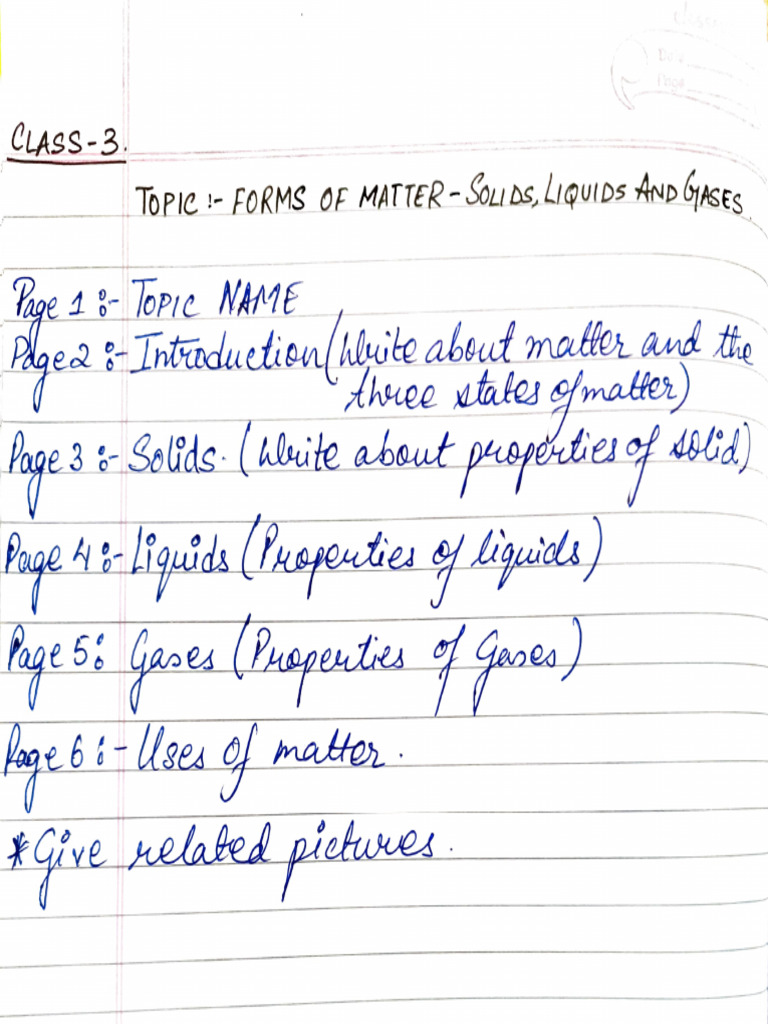 Date
Page
CLASS-3.
TOPIC :- FORMS OF MATTER - SOLIDS, LIQUIDS AND GASES.
Page 1 :- TOPIC NAME
Page 2 :- Introduction (Write about matter and the
three states of matter)
Page 3 :- Solids. (Write about properties of solid)
Page 4 :- Liquids (Properties of liquids)
Page 5: Gases (Properties of Gases)
Page 6 :- Uses of matter.
*Give related pictures.